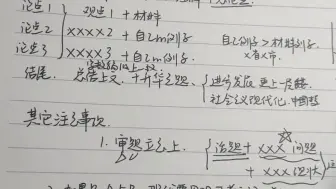 论点1 观点1+材料
论点2 xxxx2+自己m例子 自己例子>材料例子
论点3 xxxx3+自己m例子
结尾. 总结上文, 十升华主题, 进步发展 更上一层楼
社会主义现代化. 中国梦
其它注意事项.
1. 审题立意上. 话题+xxx问题
+xxx现状